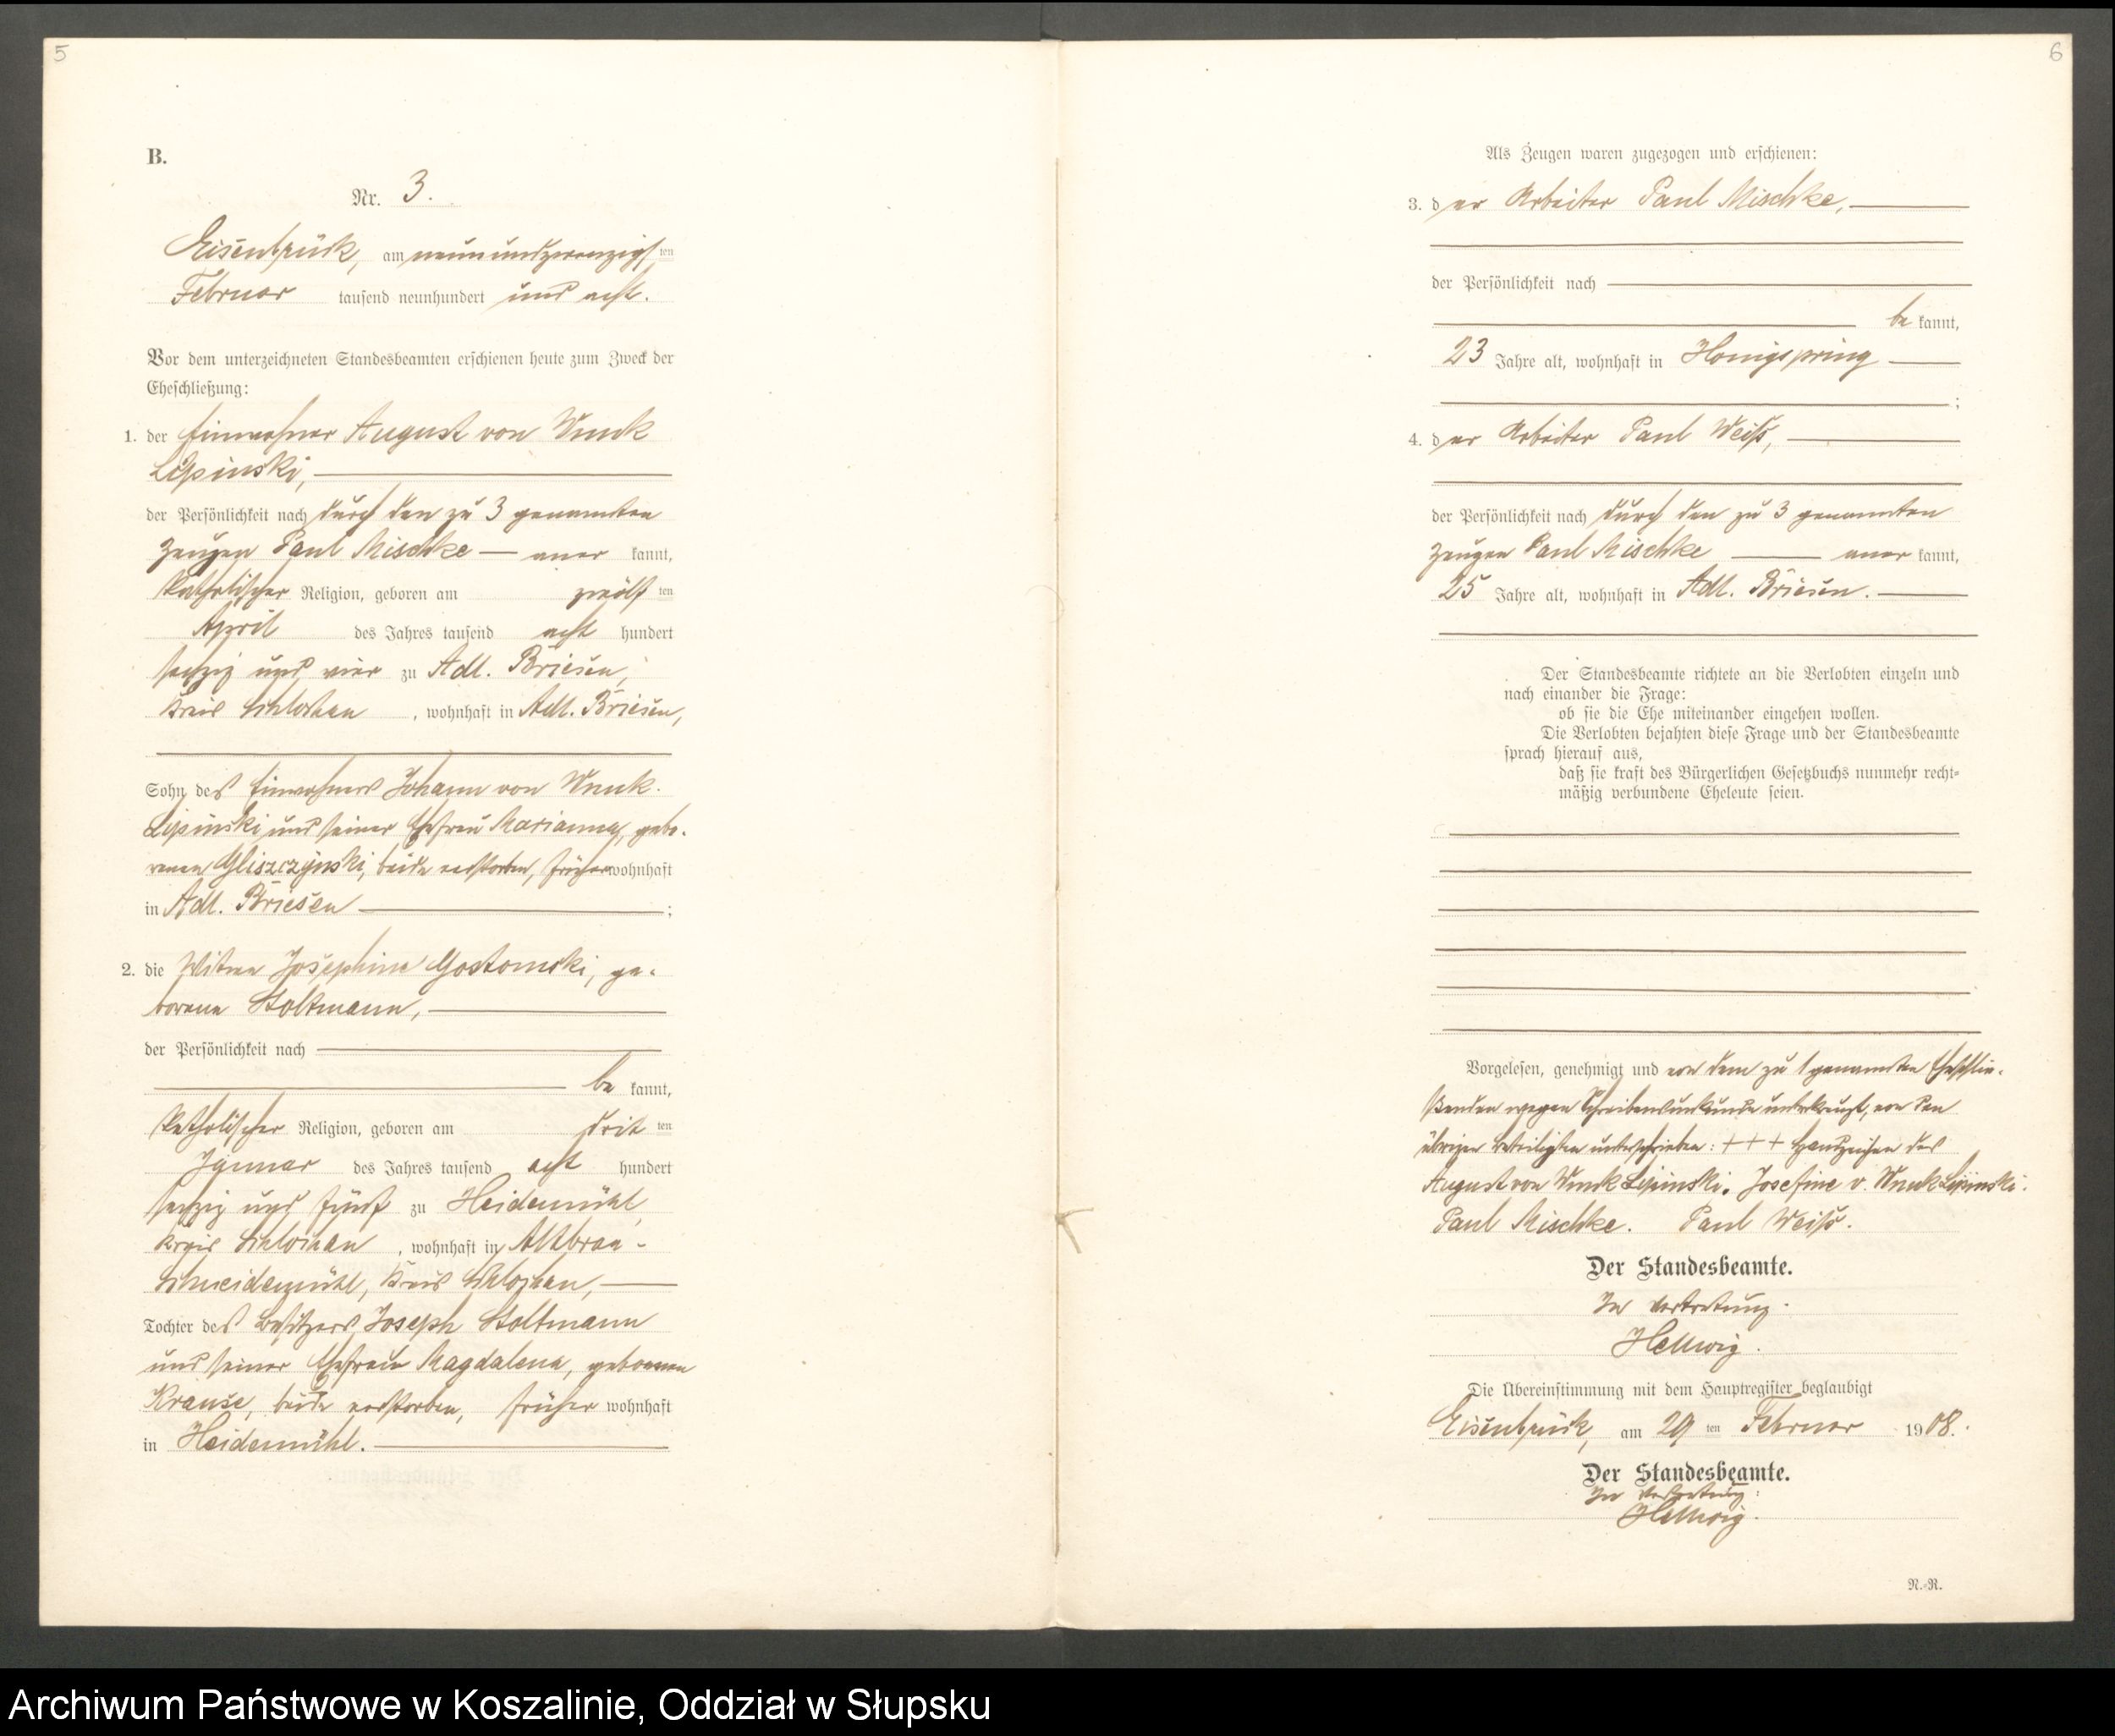 5
B.
Nr. 3.
Eisenbrück, am neunundzwanzigsten
Februar tausend neunhundert und acht.
Vor dem unterzeichneten Standesbeamten erschienen heute zum Zweck der
Eheschließung:
1. der Einwohner August von Wnuk
Lipinski,
der Persönlichkeit nach durch den zu 3 genannten
Zeugen Paul Mischke — aner kannt,
katholischer Religion, geboren am zwölf ten
April des Jahres tausend acht hundert
sechzig und vier zu Adl. Briesen,
Kreis Schlochau, wohnhaft in Adl. Briesen,
Sohn des Einwohners Johann von Wnuk-
Lipinski und seiner Ehefrau Marianna, gebo-
renen Gliszczynski, beide verstorben, früher wohnhaft
in Adl. Briesen ;
2. die Witwe Josephine Gostomski, ge-
borene Stoltmann,
der Persönlichkeit nach
be kannt,
katholischer Religion, geboren am drit ten
Januar des Jahres tausend acht hundert
sechzig und fünf zu Heidemühl,
Kreis Schlochau, wohnhaft in Altbraa-
Schneidemühl, Kreis Schlochau,
Tochter des Besitzers Joseph Stoltmann
und seiner Ehefrau Magdalena, geborenen
Krause, beide verstorben, früher wohnhaft
in Heidemühl.
6
Als Zeugen waren zugezogen und erschienen:
3. der Arbeiter Paul Mischke,
der Persönlichkeit nach
be kannt,
23 Jahre alt, wohnhaft in Honigspring
;
4. der Arbeiter Paul Weiß,
der Persönlichkeit nach durch den zu 3 genannten
Zeugen Paul Mischke — aner kannt,
25 Jahre alt, wohnhaft in Adl. Briesen.
Der Standesbeamte richtete an die Verlobten einzeln und
nach einander die Frage:
ob sie die Ehe miteinander eingehen wollen.
Die Verlobten bejahten diese Frage und der Standesbeamte
sprach hierauf aus,
daß sie kraft des Bürgerlichen Gesetzbuchs nunmehr recht-
mäßig verbundene Eheleute seien.
Vorgelesen, genehmigt und von dem zu 1 genannten Eheschlie-
ßenden wegen Schreibensunkunde unterkreuzt, von den
übrigen Beteiligten unterschrieben: +++ Handzeichen des
August von Wnuk Lipinski. Josefine v. Wnuk Lipinski.
Paul Mischke. Paul Weiß.
Der Standesbeamte.
In Vertretung.
Hellwig.
Die Übereinstimmung mit dem Hauptregister beglaubigt
Eisenbrück, am 29 ten Februar 1908.
Der Standesbeamte.
In Vertretung:
Hellwig.
R.-R.
Archiwum Państwowe w Koszalinie, Oddział w Słupsku